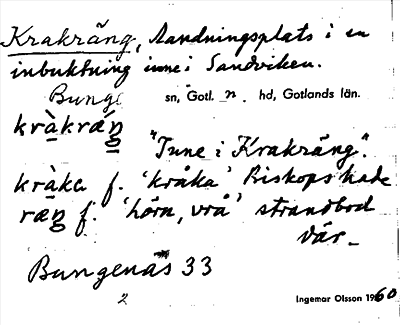 Krakräng, Landningsplats i en
inbuktning inne i Sandviken.
Bunge sn, Gotl. n. hd, Gotlands län.
kràkräŋ
"Inne i Krakräng".
kràka f. 'kråka' Biskops hade
räŋ f. 'hörn, vrå' strandbod
där.
Bungenäs 33
2
Ingemar Olsson 1960